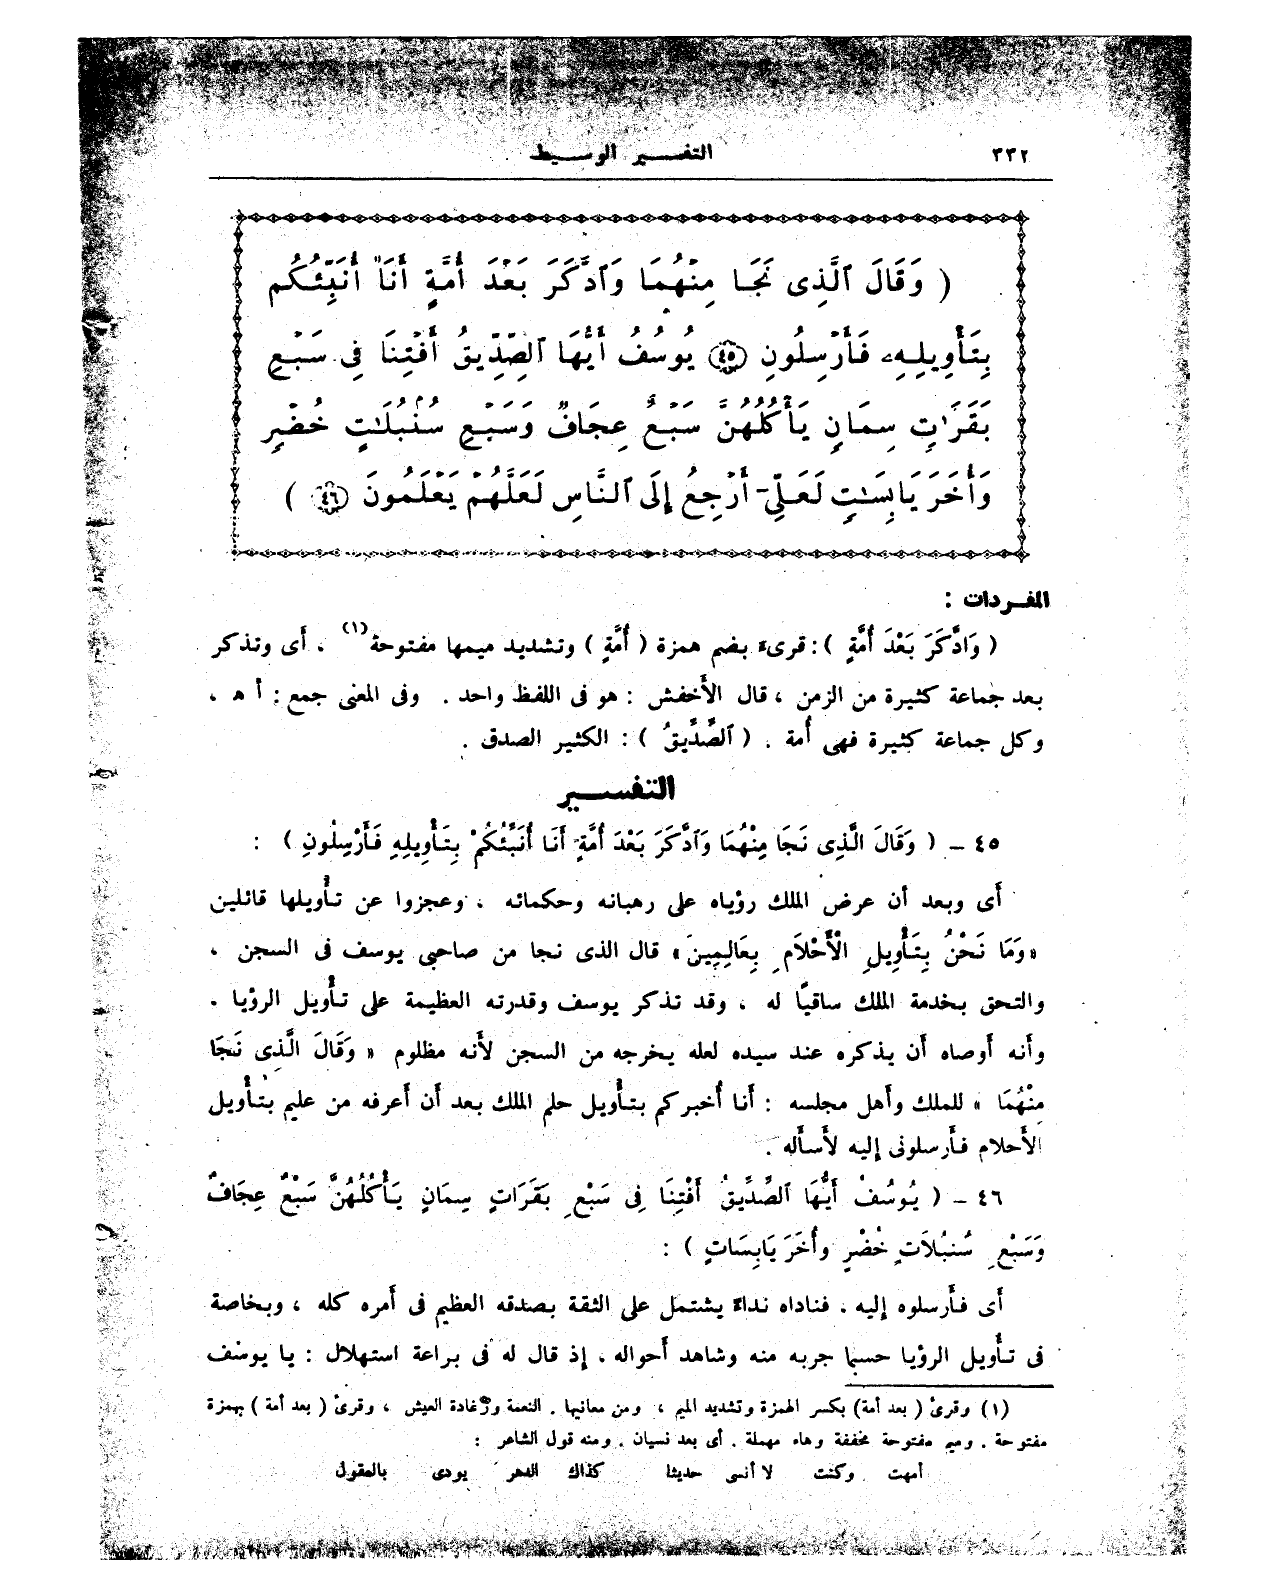 ٣٣٢
التفسير الوسيط
( وَقَالَ ٱلَّذِى نَجَا مِنْهُمَا وَٱدَّكَرَ بَعْدَ أُمَّةٍ أَنَا۠ أُنَبِّئُكُم
بِتَأْوِيلِهِۦ فَأَرْسِلُونِ ﴿٤٥﴾ يُوسُفُ أَيُّهَا ٱلصِّدِّيقُ أَفْتِنَا فِى سَبْعِ
بَقَرَٰتٍ سِمَانٍ يَأْكُلُهُنَّ سَبْعٌ عِجَافٌ وَسَبْعِ سُنۢبُلَٰتٍ خُضْرٍ
وَأُخَرَ يَابِسَٰتٍ لَّعَلِّىٓ أَرْجِعُ إِلَى ٱلنَّاسِ لَعَلَّهُمْ يَعْلَمُونَ ﴿٤٦﴾ )
المفردات :
( وَادَّكَرَ بَعْدَ أُمَّةٍ ) : قرىء بضم همزة ( أُمَّةٍ ) وتشديد ميمها مفتوحة(١) ، أى وتذكر
بعد جماعة كثيرة من الزمن ، قال الأخفش : هو فى اللفظ واحد . وفى المعنى جمع : أ ه ،
وكل جماعة كثيرة فهى أُمة . ( ٱلصِّدِّيقُ ) : الكثير الصدق .
التفسير
٤٥ - ( وَقَالَ الَّذِى نَجَا مِنْهُمَا وَٱدَّكَرَ بَعْدَ أُمَّةٍ أَنَا أُنَبِّئُكُمْ بِتَأْوِيلِهِ فَأَرْسِلُونِ ) :
أى وبعد أن عرض الملك رؤياه على رهبانه وحكمائه ، وعجزوا عن تأويلها قائلين
« وَمَا نَحْنُ بِتَأْوِيلِ الْأَحْلَامِ بِعَالِمِينَ » قال الذى نجا من صاحبى يوسف فى السجن ،
والتحق بخدمة الملك ساقيًا له ، وقد تذكر يوسف وقدرته العظيمة على تأويل الرؤيا .
وأنه أوصاه أن يذكره عند سيده لعله يخرجه من السجن لأنه مظلوم « وَقَالَ الَّذِى نَجَا
مِنْهُمَا » للملك وأهل مجلسه : أنا أُخبركم بتأويل حلم الملك بعد أن أعرفه من عليم بتأويل
الأحلام فأرسلونى إليه لأسأله .
٤٦ - ( يُوسُفُ أَيُّهَا ٱلصِّدِّيقُ أَفْتِنَا فِى سَبْعِ بَقَرَاتٍ سِمَانٍ يَأْكُلُهُنَّ سَبْعٌ عِجَافٌ
وَسَبْعِ سُنبُلَاتٍ خُضْرٍ وأُخَرَ يَابِسَاتٍ ) :
أى فأرسلوه إليه ، فناداه نداءً يشتمل على الثقة بصدقه العظيم فى أمره كله ، وبخاصة
فى تأويل الرؤيا حسبما جربه منه وشاهد أحواله ، إذ قال له فى براعة استهلال : يا يوسُف
(١) وقرئ ( بعد أمة) بكسر الهمزة وتشديد الميم ، ومن معانيها . النعمة ورغادة العيش ، وقرئ ( بعد أمة ) بهمزة
مفتوحة . وميم مفتوحة مخففة وهاء مهملة . أى بعد نسيان . ومنه قول الشاعر :
أمهت وكنت لا أنسى حديثا كذاك الدهر يودى بالعقول